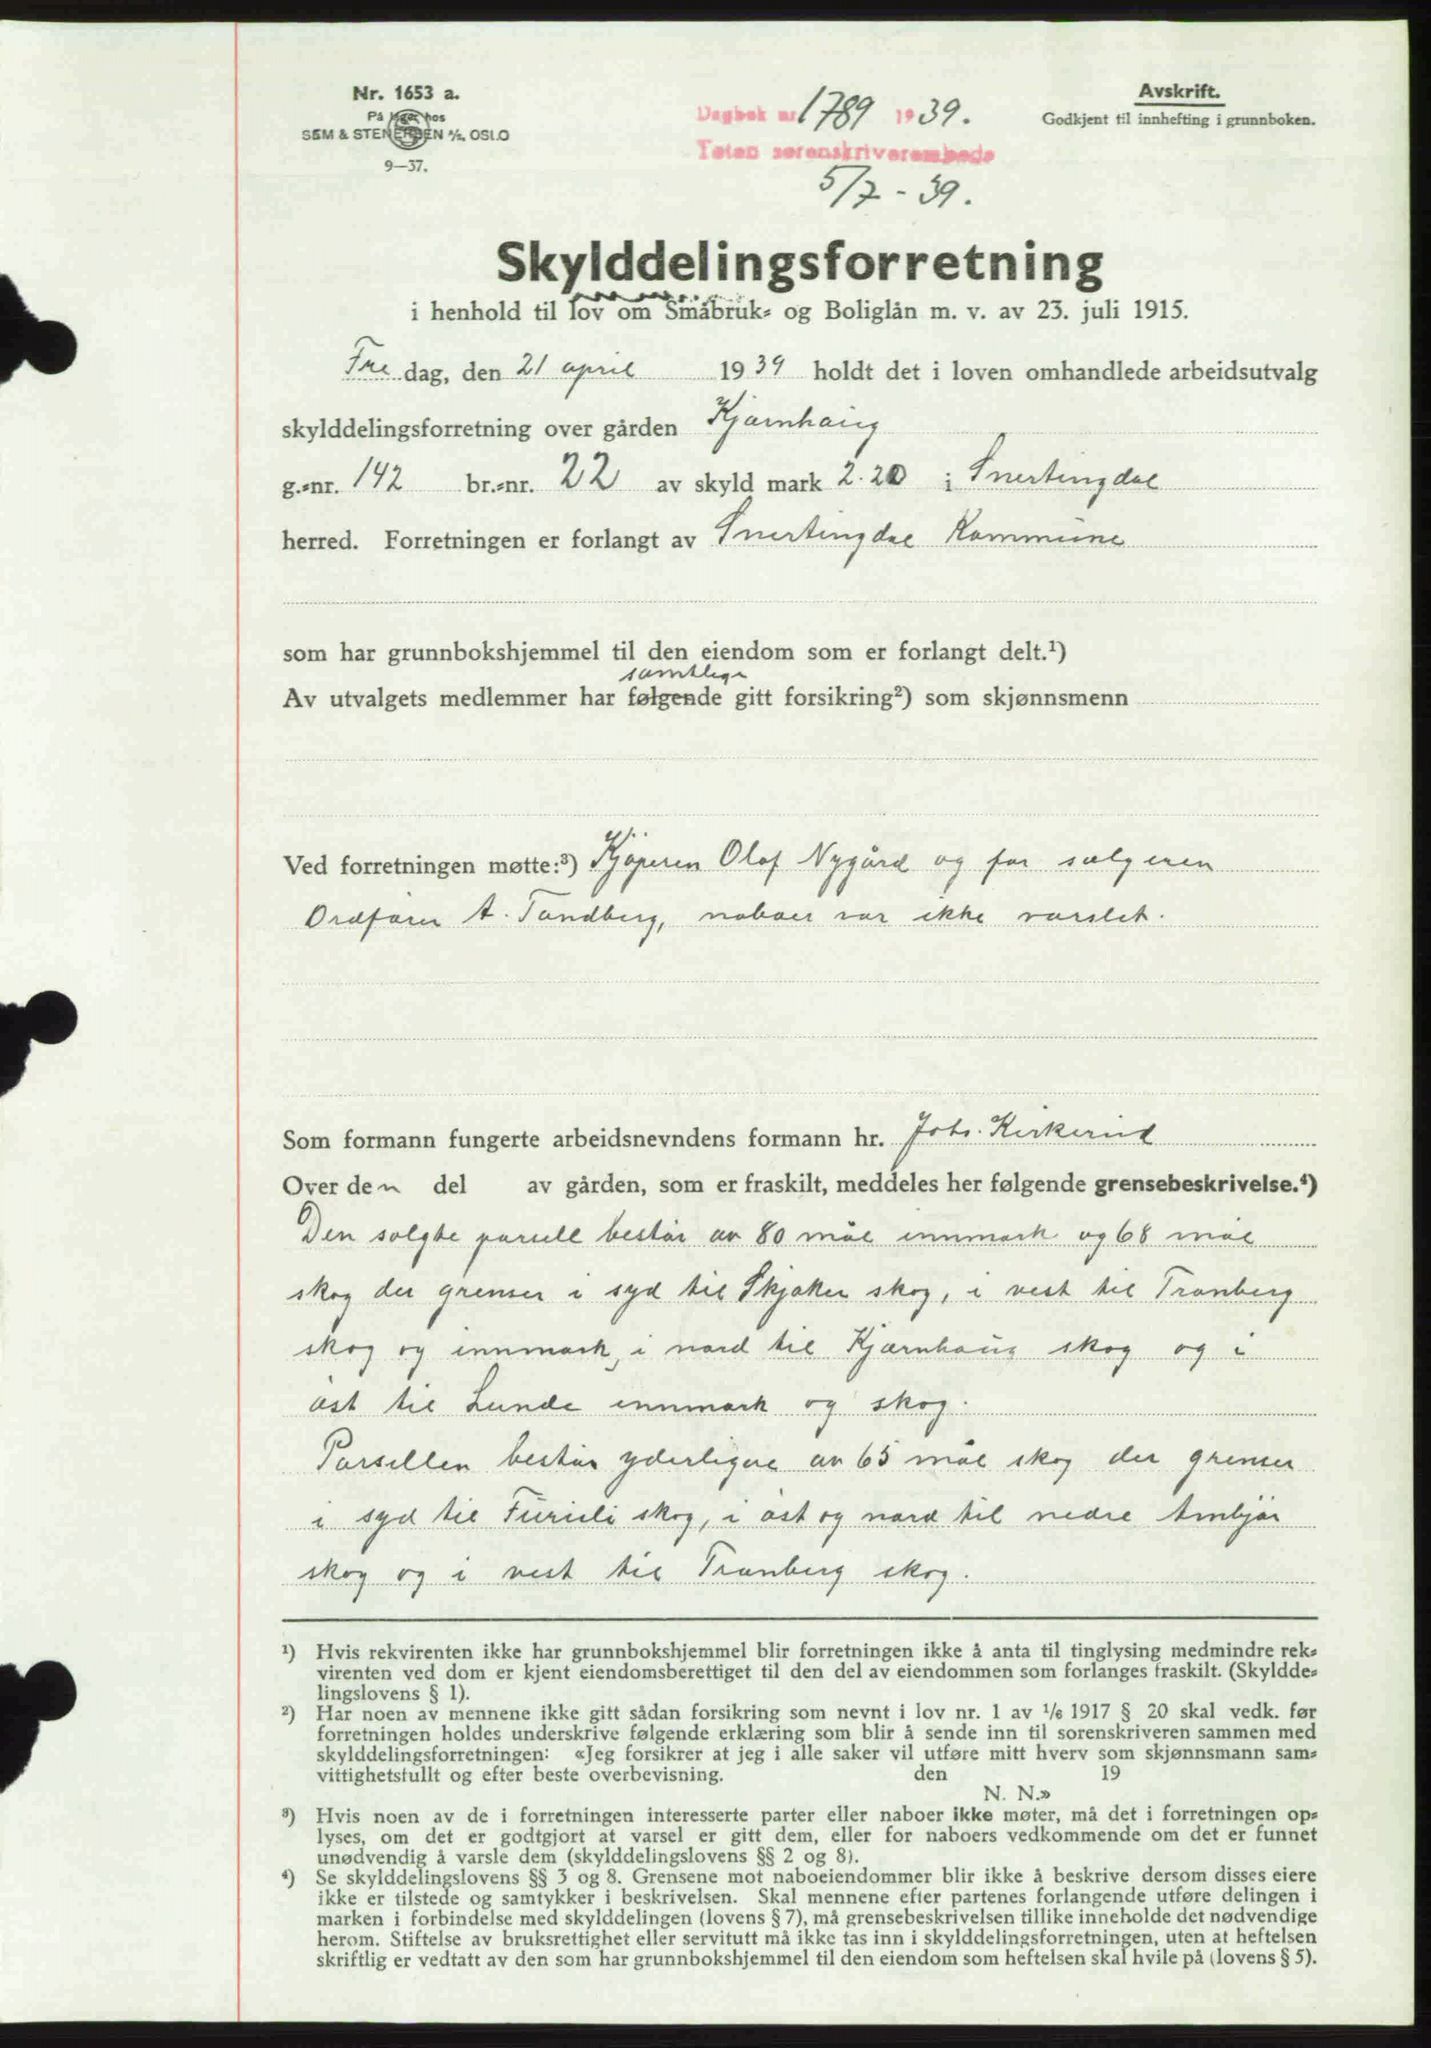 Nr. 1653 a.
På lager hos
SEM & STENERSEN A/S, OSLO
9—37.
Dagbok nr. 1789 1939.
Toten sorenskriverembede
5/7 - 39.
Avskrift.
Godkjent til innhefting i grunnboken.
Skylddelingsforretning
i henhold til lov om Småbruk- og Boliglån m. v. av 23. juli 1915.
Fre dag, den 21 april 1939 holdt det i loven omhandlede arbeidsutvalg
skylddelingsforretning over gården Kjærnhaug
g.-nr. 142 br.-nr. 22 av skyld mark 2.20 i Snertingdal
herred. Forretningen er forlangt av Snertingdal Kommune
som har grunnbokshjemmel til den eiendom som er forlangt delt.¹)
samtlige
Av utvalgets medlemmer har følgende gitt forsikring²) som skjønnsmenn
Ved forretningen møtte:³) Kjøperen Olaf Nygård og for selgeren
Ordfører A. Tandberg, naboer var ikke varslet.
Som formann fungerte arbeidsnevndens formann hr. Johs. Kirkerud
Over den del av gården, som er fraskilt, meddeles her følgende grensebeskrivelse.⁴)
Den solgte parsell består av 80 mål innmark og 68 mål
skog der grenser i syd til Skjaker skog, i vest til Tranberg
skog og innmark, i nord til Kjærnhaug skog og i
øst til Lunde innmark og skog.
Parsellen består yderligere av 65 mål skog der grenser
i syd til Furuli skog, i øst og nord til nedre Ambjør
skog og i vest til Tranberg skog.
¹) Hvis rekvirenten ikke har grunnbokshjemmel blir forretningen ikke å anta til tinglysing medmindre rek-
virenten ved dom er kjent eiendomsberettiget til den del av eiendommen som forlanges fraskilt. (Skyldde-
lingslovens § 1).
²) Har noen av mennene ikke gitt sådan forsikring som nevnt i lov nr. 1 av 1/6 1917 § 20 skal vedk. før
forretningen holdes underskrive følgende erklæring som blir å sende inn til sorenskriveren sammen med
skylddelingsforretningen: «Jeg forsikrer at jeg i alle saker vil utføre mitt hverv som skjønnsmann sam-
vittighetsfullt og efter beste overbevisning. den 19
N. N.»
³) Hvis noen av de i forretningen interesserte parter eller naboer ikke møter, må det i forretningen op-
lyses, om det er godtgjort at varsel er gitt dem, eller for naboers vedkommende om det er funnet
unødvendig å varsle dem (skylddelingslovens §§ 2 og 8).
⁴) Se skylddelingslovens §§ 3 og 8. Grensene mot naboeiendommer blir ikke å beskrive dersom disses eiere
ikke er tilstede og samtykker i beskrivelsen. Skal mennene efter partenes forlangende utføre delingen i
marken i forbindelse med skylddelingen (lovens § 7), må grensebeskrivelsen tillike inneholde det nødvendige
herom. Stiftelse av bruksrettighet eller servitutt må ikke tas inn i skylddelingsforretningen, uten at heftelsen
skriftlig er vedtatt av den som har grunnbokshjemmel til den eiendom som heftelsen skal hvile på (lovens § 5).